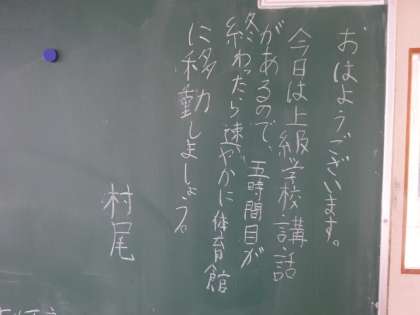 おはようございます。
今日は上級学校講話
があるので、五時間目が
終わったら速やかに体育館
に移動しましょう。
村尾